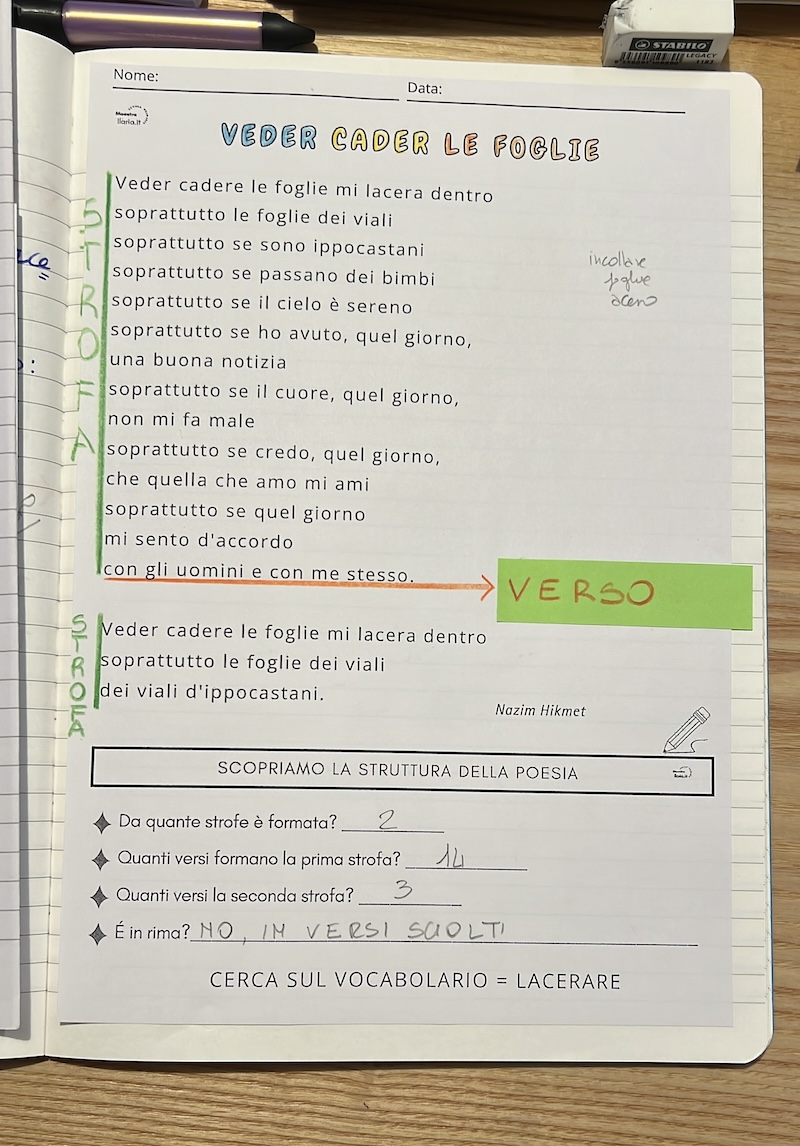 STABILO
LEGACY
Nome:
Data:
Maestra
Ilaria.it
VEDER CADER LE FOGLIE
STROFA
Veder cadere le foglie mi lacera dentro
soprattutto le foglie dei viali
soprattutto se sono ippocastani
soprattutto se passano dei bimbi
soprattutto se il cielo è sereno
soprattutto se ho avuto, quel giorno,
una buona notizia
soprattutto se il cuore, quel giorno,
non mi fa male
soprattutto se credo, quel giorno,
che quella che amo mi ami
soprattutto se quel giorno
mi sento d'accordo
con gli uomini e con me stesso.
incollare
foglie
acero
VERSO
STROFA
Veder cadere le foglie mi lacera dentro
soprattutto le foglie dei viali
dei viali d'ippocastani.
Nazim Hikmet
SCOPRIAMO LA STRUTTURA DELLA POESIA
Da quante strofe è formata? 2
Quanti versi formano la prima strofa? 14
Quanti versi la seconda strofa? 3
É in rima? NO, IN VERSI SCIOLTI
CERCA SUL VOCABOLARIO = LACERARE